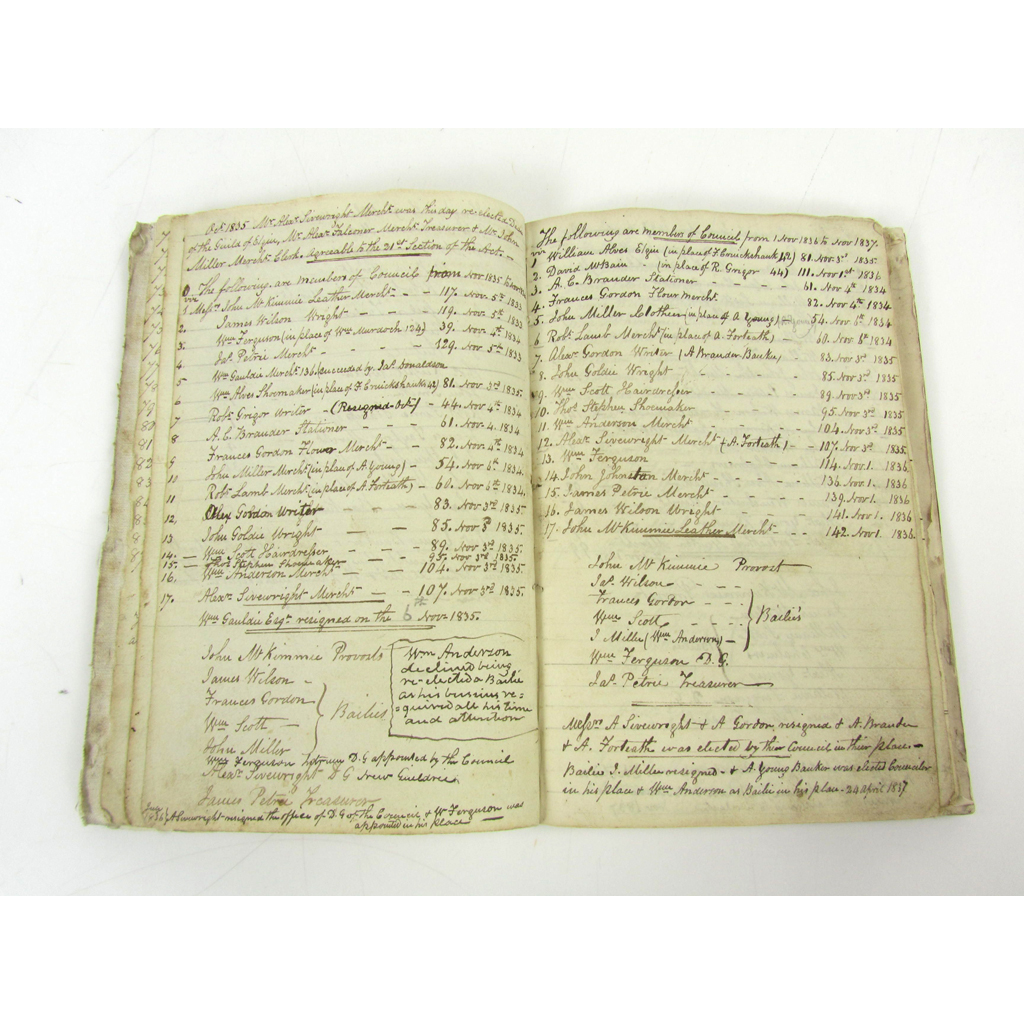 Oct. 1835 Mr. Alexr. Sivewright Mercht. was this day re-elected Dean
of the Guild of Elgin, Mr. Alexr. Falconer Mercht. Treasurer & Mr. John
Miller Mercht. Clerk. agreeable to the 21st Section of the Act. —
The following are members of Council from Nov 1835 to
1 Messrs. John McKimmie Leather Mercht. — — 117. Nov. 5th 1833
2. James Wilson Wright — — 119. Nov. 5th 1833
3. Wm. Ferguson (in place of Wm. Murdoch 124) 39. Nov. 4th 1834
4 Jas. Petrie Mercht. - - - - 129. Nov 5th 1833
5 Wm. Gauldie Mercht. 136. succeeded by Jas. Donaldson
6 Wm. Alves Shoemaker (in place of F. Cruickshank 42) 81. Nov. 3rd 1835
7 Robt. Grigor Writer - (Resigned Oct.) - 44. Nov 4th 1834
8 A. C. Brander Stationer — — 61. Nov. 4 1834
9 Frances Gordon Flour Mercht. — 82. Nov 4th 1834
10 John Miller Mercht. (in place of A Young) — 54. Nov 6th 1834
11 Robt. Lamb Mercht. (in place of A. Forteath) — 60. Nov 6th 1834
12. Alex Gordon Writer 83. Nov 3rd 1835
13 John Goldie Wright — 85. Nov 3 1835
14. — Wm. Scott Hairdresser — 89. Nov 3rd 1835
15. Thos. Stephen Shoemaker 95. Nov 3rd 1835
16. Wm. Anderson Mercht. — — 104. Nov 3rd 1835
17. Alexr. Sivewright Mercht. — — 107. Nov 3rd 1835
Wm. Gauldie Esqr. resigned on the 6th Nov. 1835.
John McKimmie Provost
James Wilson -
Frances Gordon
Wm. Scott —
John Miller
Bailies
Wm. Anderson
declined being
re-elected a Bailie
as his business re=
quired all his time
and attention
Wm. Ferguson D.G appointed by the Council
Alexr. Sivewright D G New Guildree
James Petrie Treasurer
A Sivewright resigned the office of D.G of the Council & W Ferguson was
appointed in his place
The following are members of Council from 1 Nov 1836 to Nov 1837.
1 William Alves Elgin (in place of F. Cruickshank 42) 81. Nov. 3rd 1835
2. David McBain - (in place of R. Grigor 44) 111. Nov 1st 1836
3. A. C. Brander Stationer - - - 61. Nov 4th 1834
4. Frances Gordon Flour mercht. 82. Nov 4th 1834
5. John Miller Clothier (in place of A Young) — 54. Nov 6th 1834
6 Robt. Lamb Mercht. (in place of A. Forteath) — 60. Nov 6th 1834
7. Alexr. Gordon Writer (A Brander Banker) 83. Nov 3rd 1835
8. John Goldie Wright - - - 85. Nov 3rd 1835
9. Wm. Scott Hairdresser - - - 89. Nov 3rd 1835
10. Thos. Stephen Shoemaker - - 95. Nov 3rd 1835
11. Wm. Anderson Mercht. - - - 104. Nov 3rd 1835
12. Alexr. Sivewright Mercht. (A. Forteath) — 107. Nov 3rd 1835
13. Wm. Ferguson - - - 114. Nov. 1. 1836
14. John Johnstan Mercht. - - - 136. Nov 1. 1836
15. James Petrie Mercht. - - 139. Nov 1. 1836
16. James Wilson Wright - - 141. Nov 1. 1836
17. John McKimmie Leather Mercht. - 142. Nov 1. 1836.
John McKimmie Provost
Jas. Wilson
Frances Gordon
Wm. Scott
J. Miller (Wm. Anderson) —
Bailies
Wm. Ferguson D.G.
Jas. Petrie Treasurer
Messrs. A Sivewright & A Gordon resigned & A. Brander
& A. Forteath was elected by the Council in their place. —
Bailie J. Miller resigned — & A. Young Banker was elected Councelor
in his place & Wm. Anderson as Bailie in his place - 24 April 1837